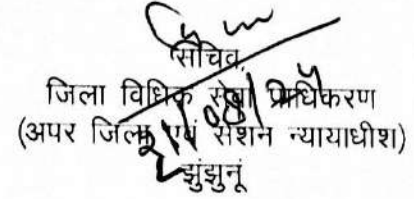 सचिव,
जिला विधिक सेवा प्राधिकरण
(अपर जिला एवं सेशन न्यायाधीश)
झुंझुनूं